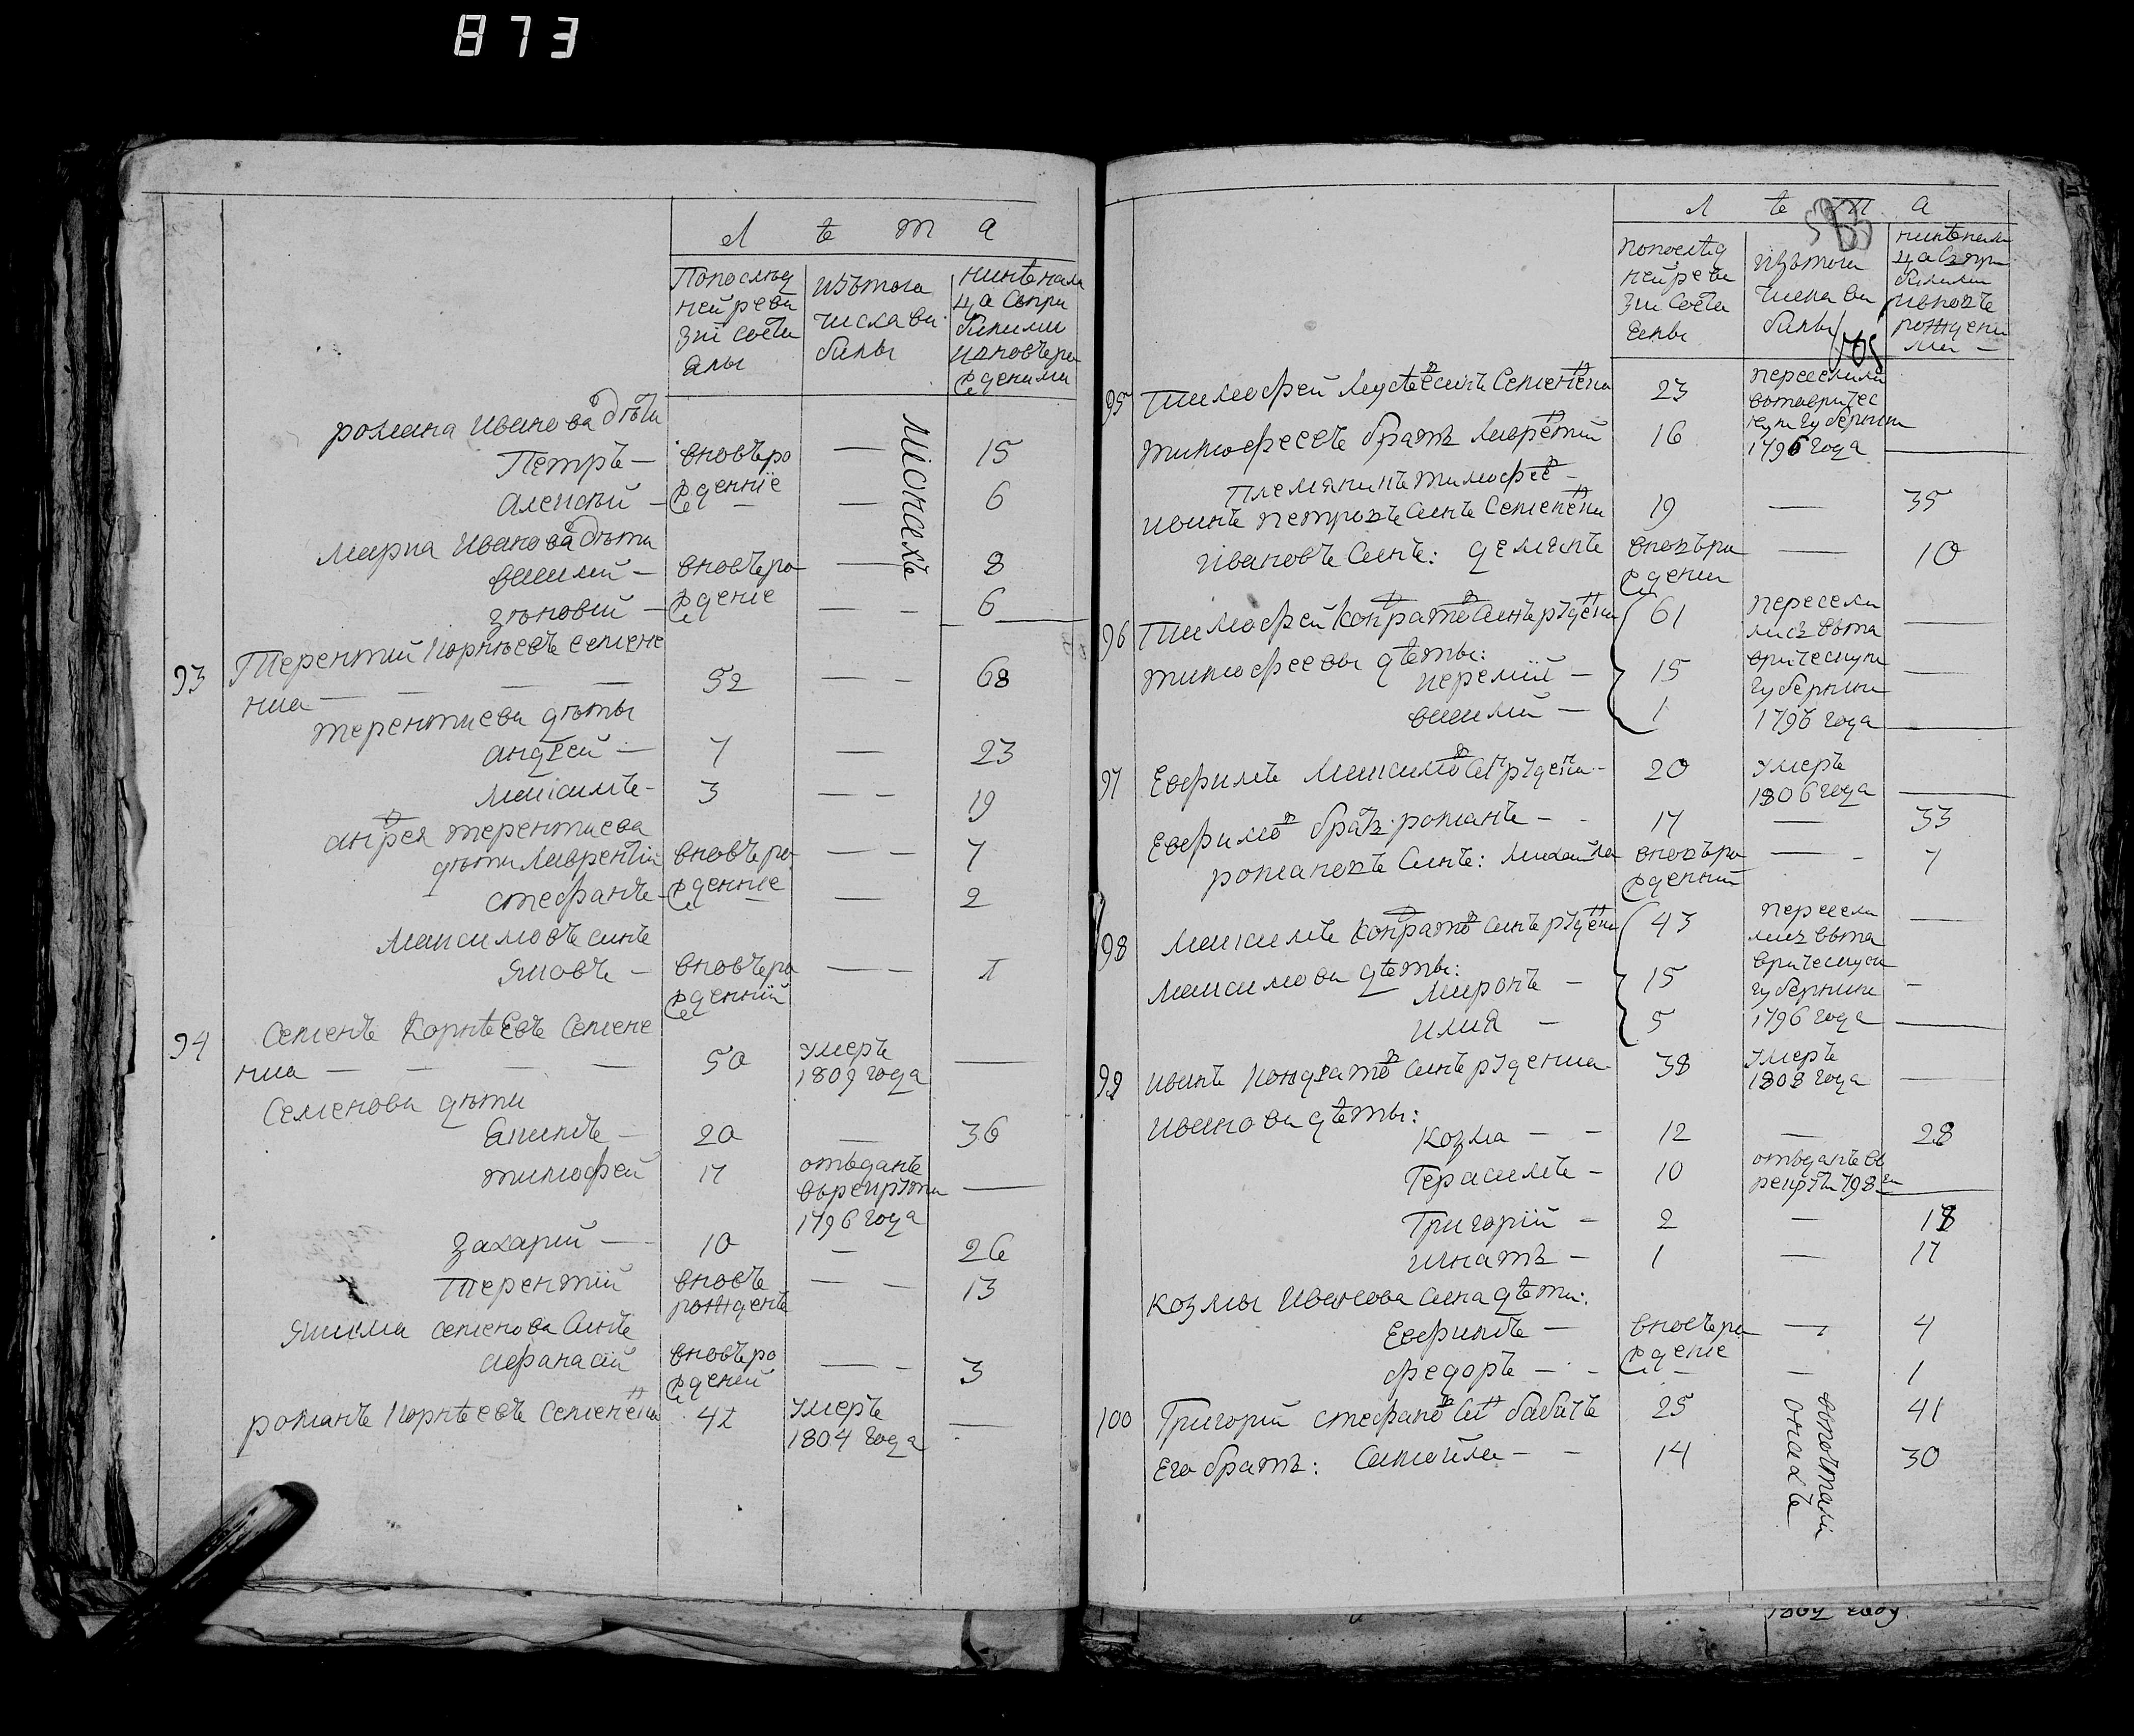 873
Лѣта
Попослѣд
ней реви
зіи состо
яли
изътого
числа вы
были
нынѣ нали
цо съпри
былыми
иновъро
жденими
романа Иванова дѣти
Петръ — вновъро — 15
Алексѣй — жденніе — 6
Марка Иванова дѣти
василій — вновъро — 8
зѣновій — жденіе — — 6
93 Терентій Корнѣевъ семене
нка — — — — 52 — — 68
терентиева дѣты
андрей — 7 — 23
максимъ — 3 — — 19
андрея терентиева
дѣти лаврентій вновъро — — 7
стефанъ — жденніе — 2
Максимовъ синъ
Яковъ — вновъро — — 1
жденній
94 Семенъ Корнѣевъ Семене
нка — — — — 50 умеръ
1809 года —
Семенова дѣти
Екимъ — 20 — 36
тимофей 17 отъданъ
върекруты
1796 года —
Захарій — 10 — 26
Терентій вновъ
рожденъ — — 13
Якима семенова синъ
Афанасій вновъро
жденій — — 3
романъ Корнѣевъ Семененка 42 умеръ
1804 года —
Лѣта
Попослѣд
ней реви
зіи состо
яли
изътого
числа вы
были
нинѣ нали
цо съпри
былими
ивновъ
рожден
ми —
95 Тимофей Семененка 23 переселили
вътавричес
кую губернию
1796 года
тимофеевъ братъ Лаврентій 16 —
Племяникъ тимофеевъ
иванъ петровъ синъ Семененка 19 — 35
Ивановъ Синъ: демянъ вновъро — 10
ждени
96 Тимофей Кондратовъ синъ руденка 61 пересели
лись въта
врическую
губернию
1796 года —
тимофеевы дѣты:
иеремій — 15 —
василій — 1 —
97 Евфимъ Максимовъ синъ руденка — 20 умеръ
1806 года —
Евфимовъ братъ романъ — 17 — 33
романовъ синъ: михайла вновъро — — 7
жденний
98 Максимъ Кондратовъ синъ руденка 43 пересели
лись въта
врическую
губернию
1796 года —
Максимова дѣты:
миронъ — 15 —
илия — 5 —
99 иванъ кондратовъ синъ руденка 38 умеръ
1808 года —
Иванова дѣты:
козма — — 12 — 28
Герасимъ — 10 отъданъ въ
рекруты 798 го —
Григорій — 2 — 18
игнатъ — 1 — 17
козмы Иванова сина дѣти:
Евфимъ — вновъро — 4
федоръ — — жденіе — 1
100 Григорій стефановъ синъ бабичъ 25 41
Его братъ: Самойла — — 14 30